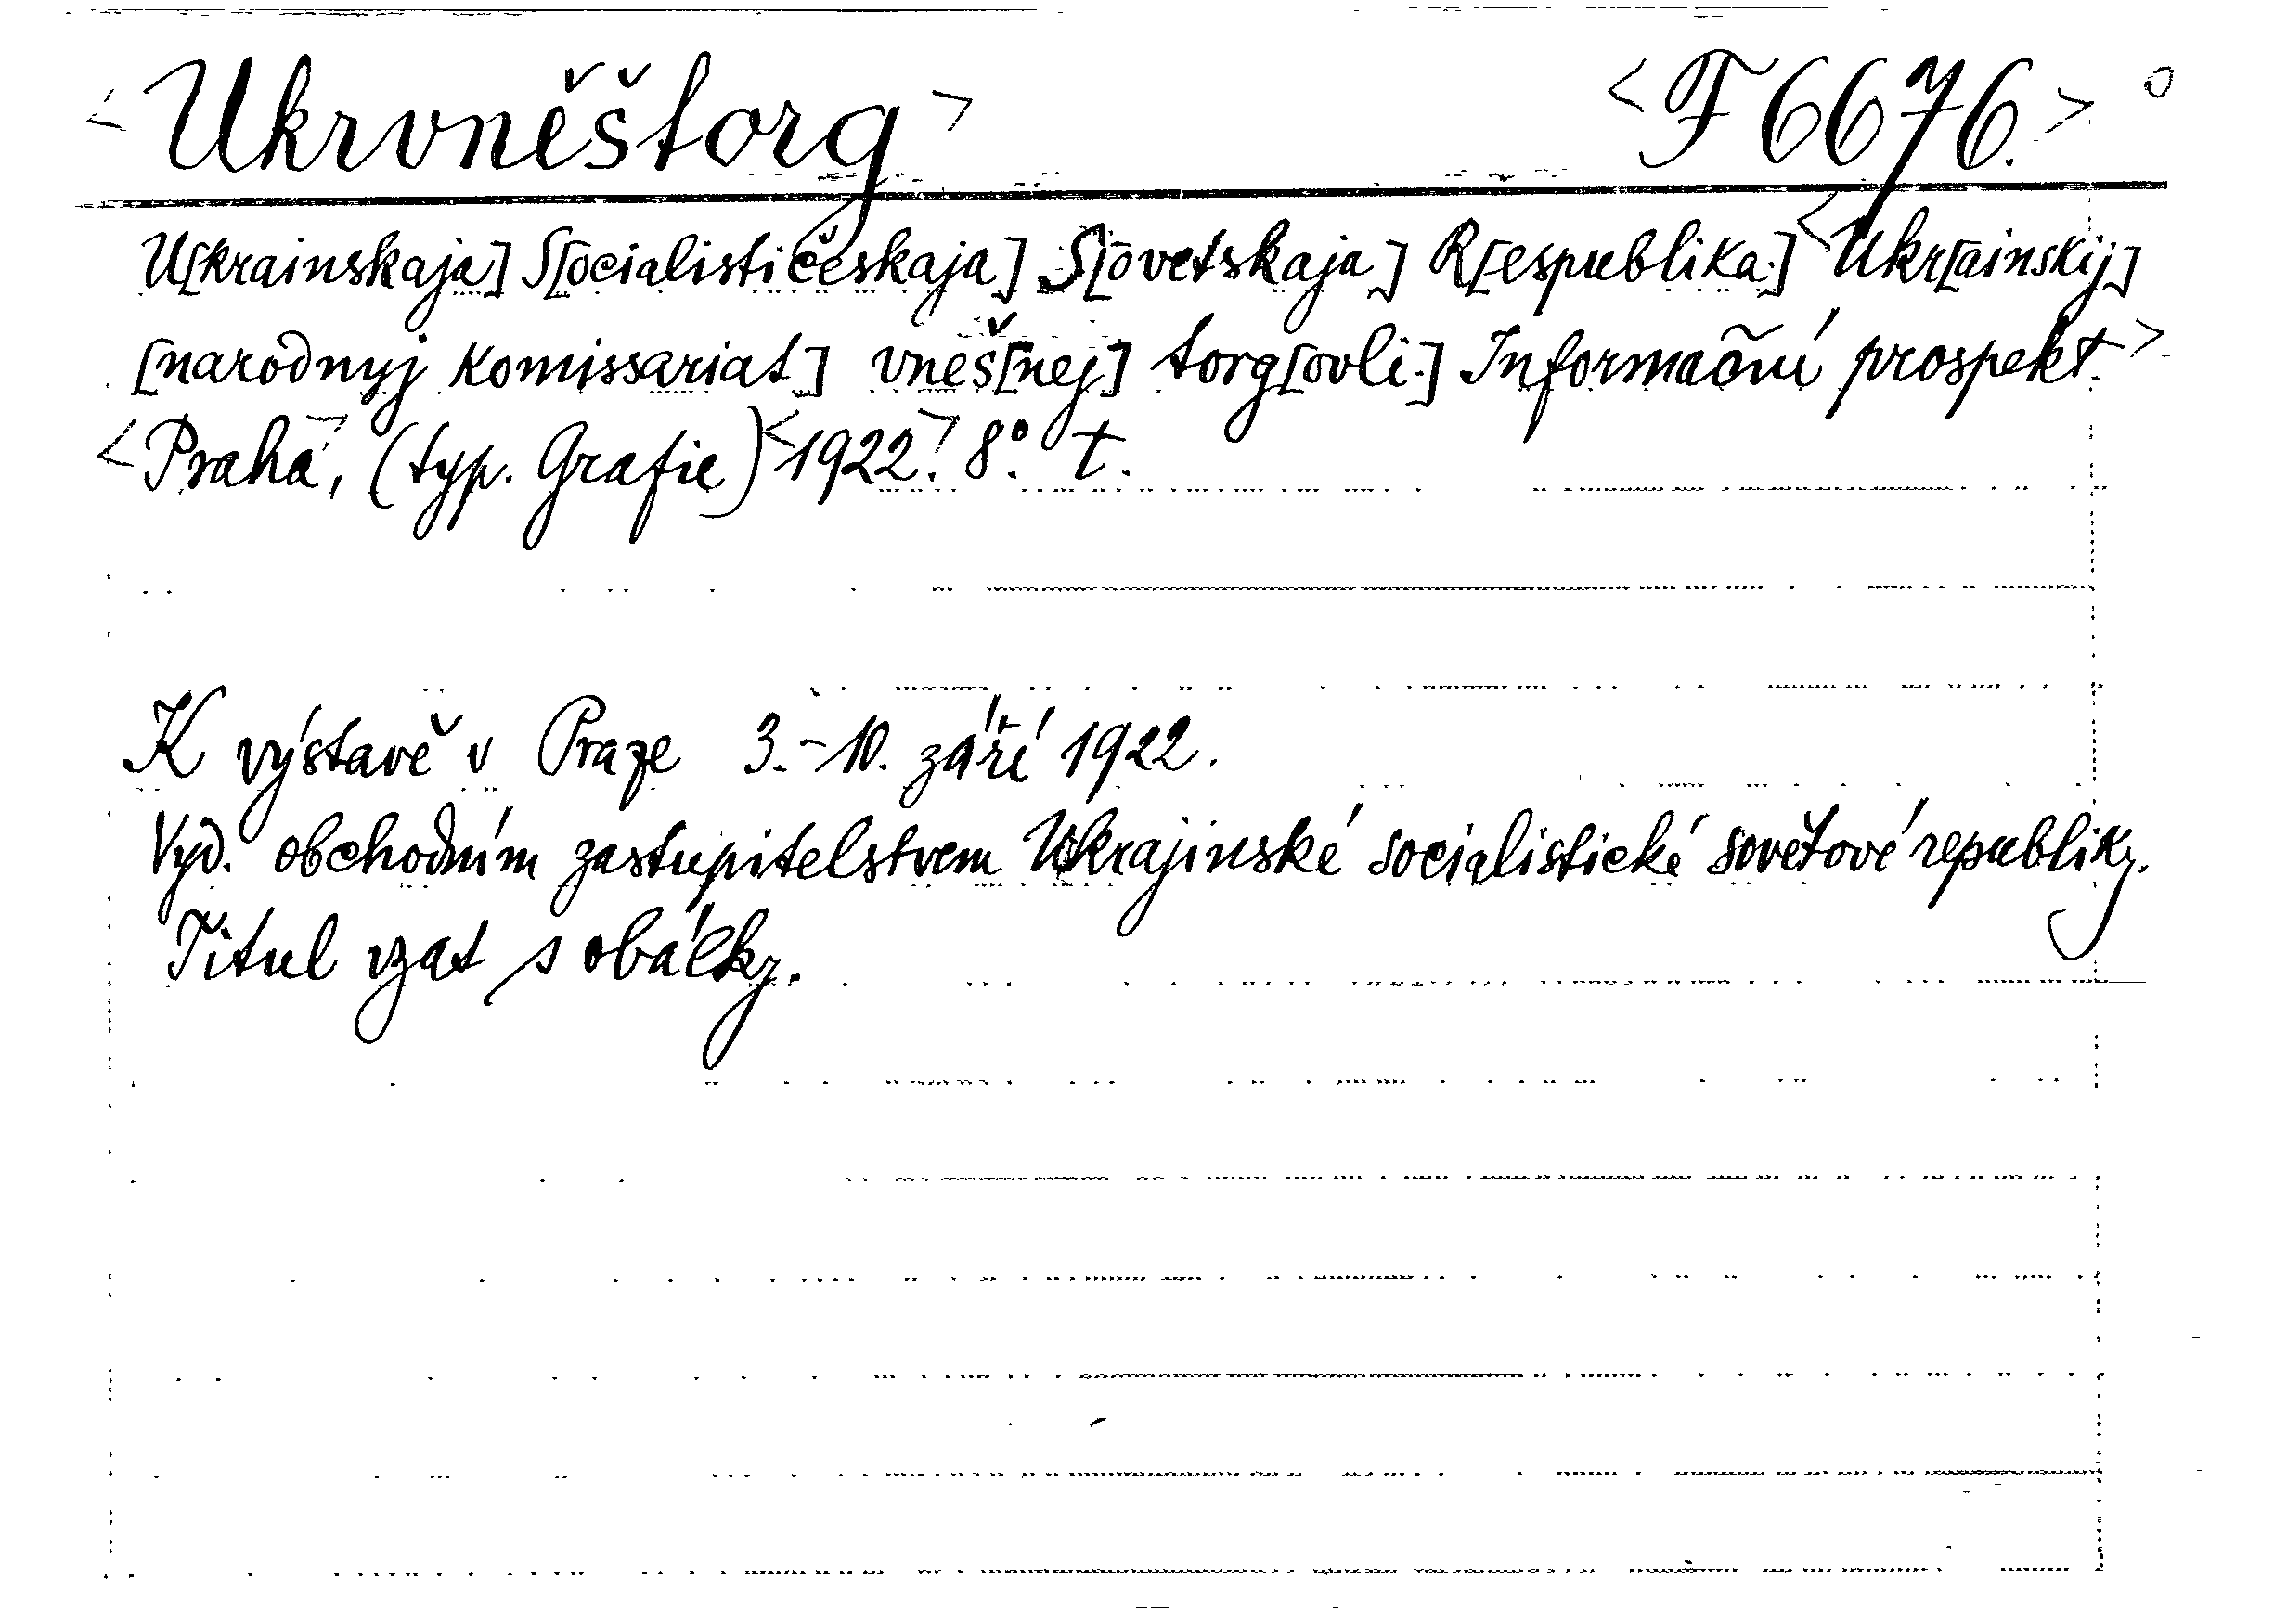 <Ukrvněštorg> <F 6676.> o
U[krainskaja] S[ocialističeskaja] S[ovetskaja] R[espublika.] <Ukr[ainskij]
[narodnyj komissariat] vneš[nej] torg[ovli.] Informační prospekt.>
<Praha>, (typ. Grafie) <1922>. 8°. t.
K výstavě v Praze 3.-10. září 1922.
Vyd. obchodním zastupitelstvem Ukrajinské socialistické sovětové republiky.
Titul vzat s obálky.